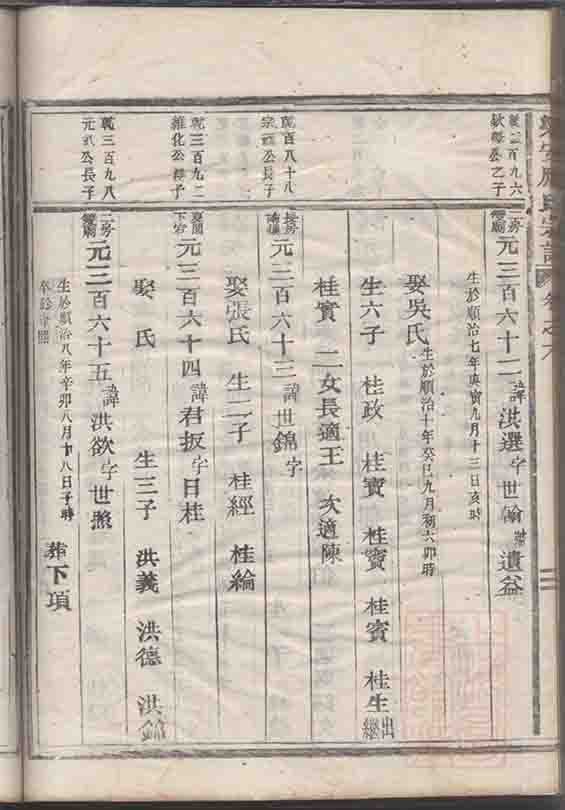 氏宗譜
乾三百九六
公之子
二房
元三百六十二 諱洪選 字世翰 號遺益
生於順治七年庚寅九月十三日亥時
娶吳氏 生於順治十年癸巳九月初六卯時
生六子 桂政 桂寶 桂賓 桂生 出繼
桂實 二女長適王 次適陳
乾百八十八
宗 公長子
元三百六十三 諱世錦 字
娶張氏 生二子 桂經 桂綸
乾三百九二
維化公 子
元三百六十四 諱君扳 字日桂
娶 氏 生三子 洪義 洪德 洪錦
乾三百九八
元 公長子
二房
元三百六十五 諱洪欲 字世照
生於順治八年辛卯八月十八日子時
卒於康熙 葬下項